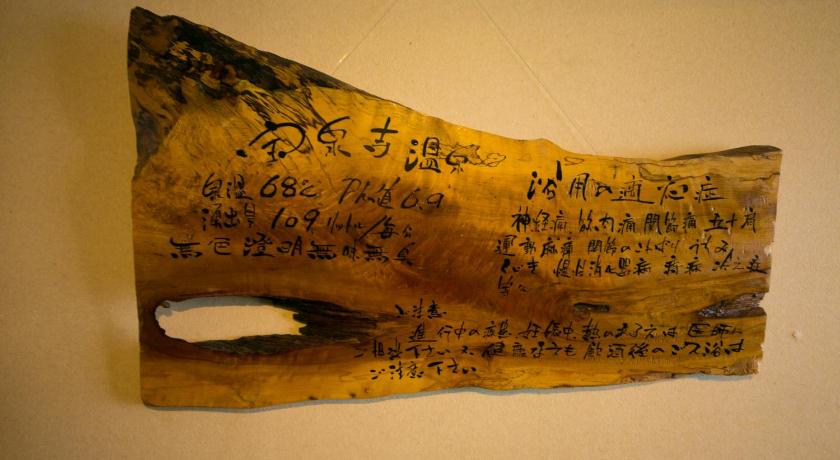 宝泉寺温泉
泉温 68℃ PH値 6.9
湧出量 109リットル/毎分
無色澄明無味無臭
浴用の適応症
神経痛 筋肉痛 関節痛 五十肩
運動麻痺 関節のこわばり うちみ
くじき 慢性消化器病 痔疾 冷え症
等々
ご注意
進行中の病 妊娠中 熱のある方は 医師に
ご相談下さい 健康な方も 飲酒後のご入浴は
ご注意下さい